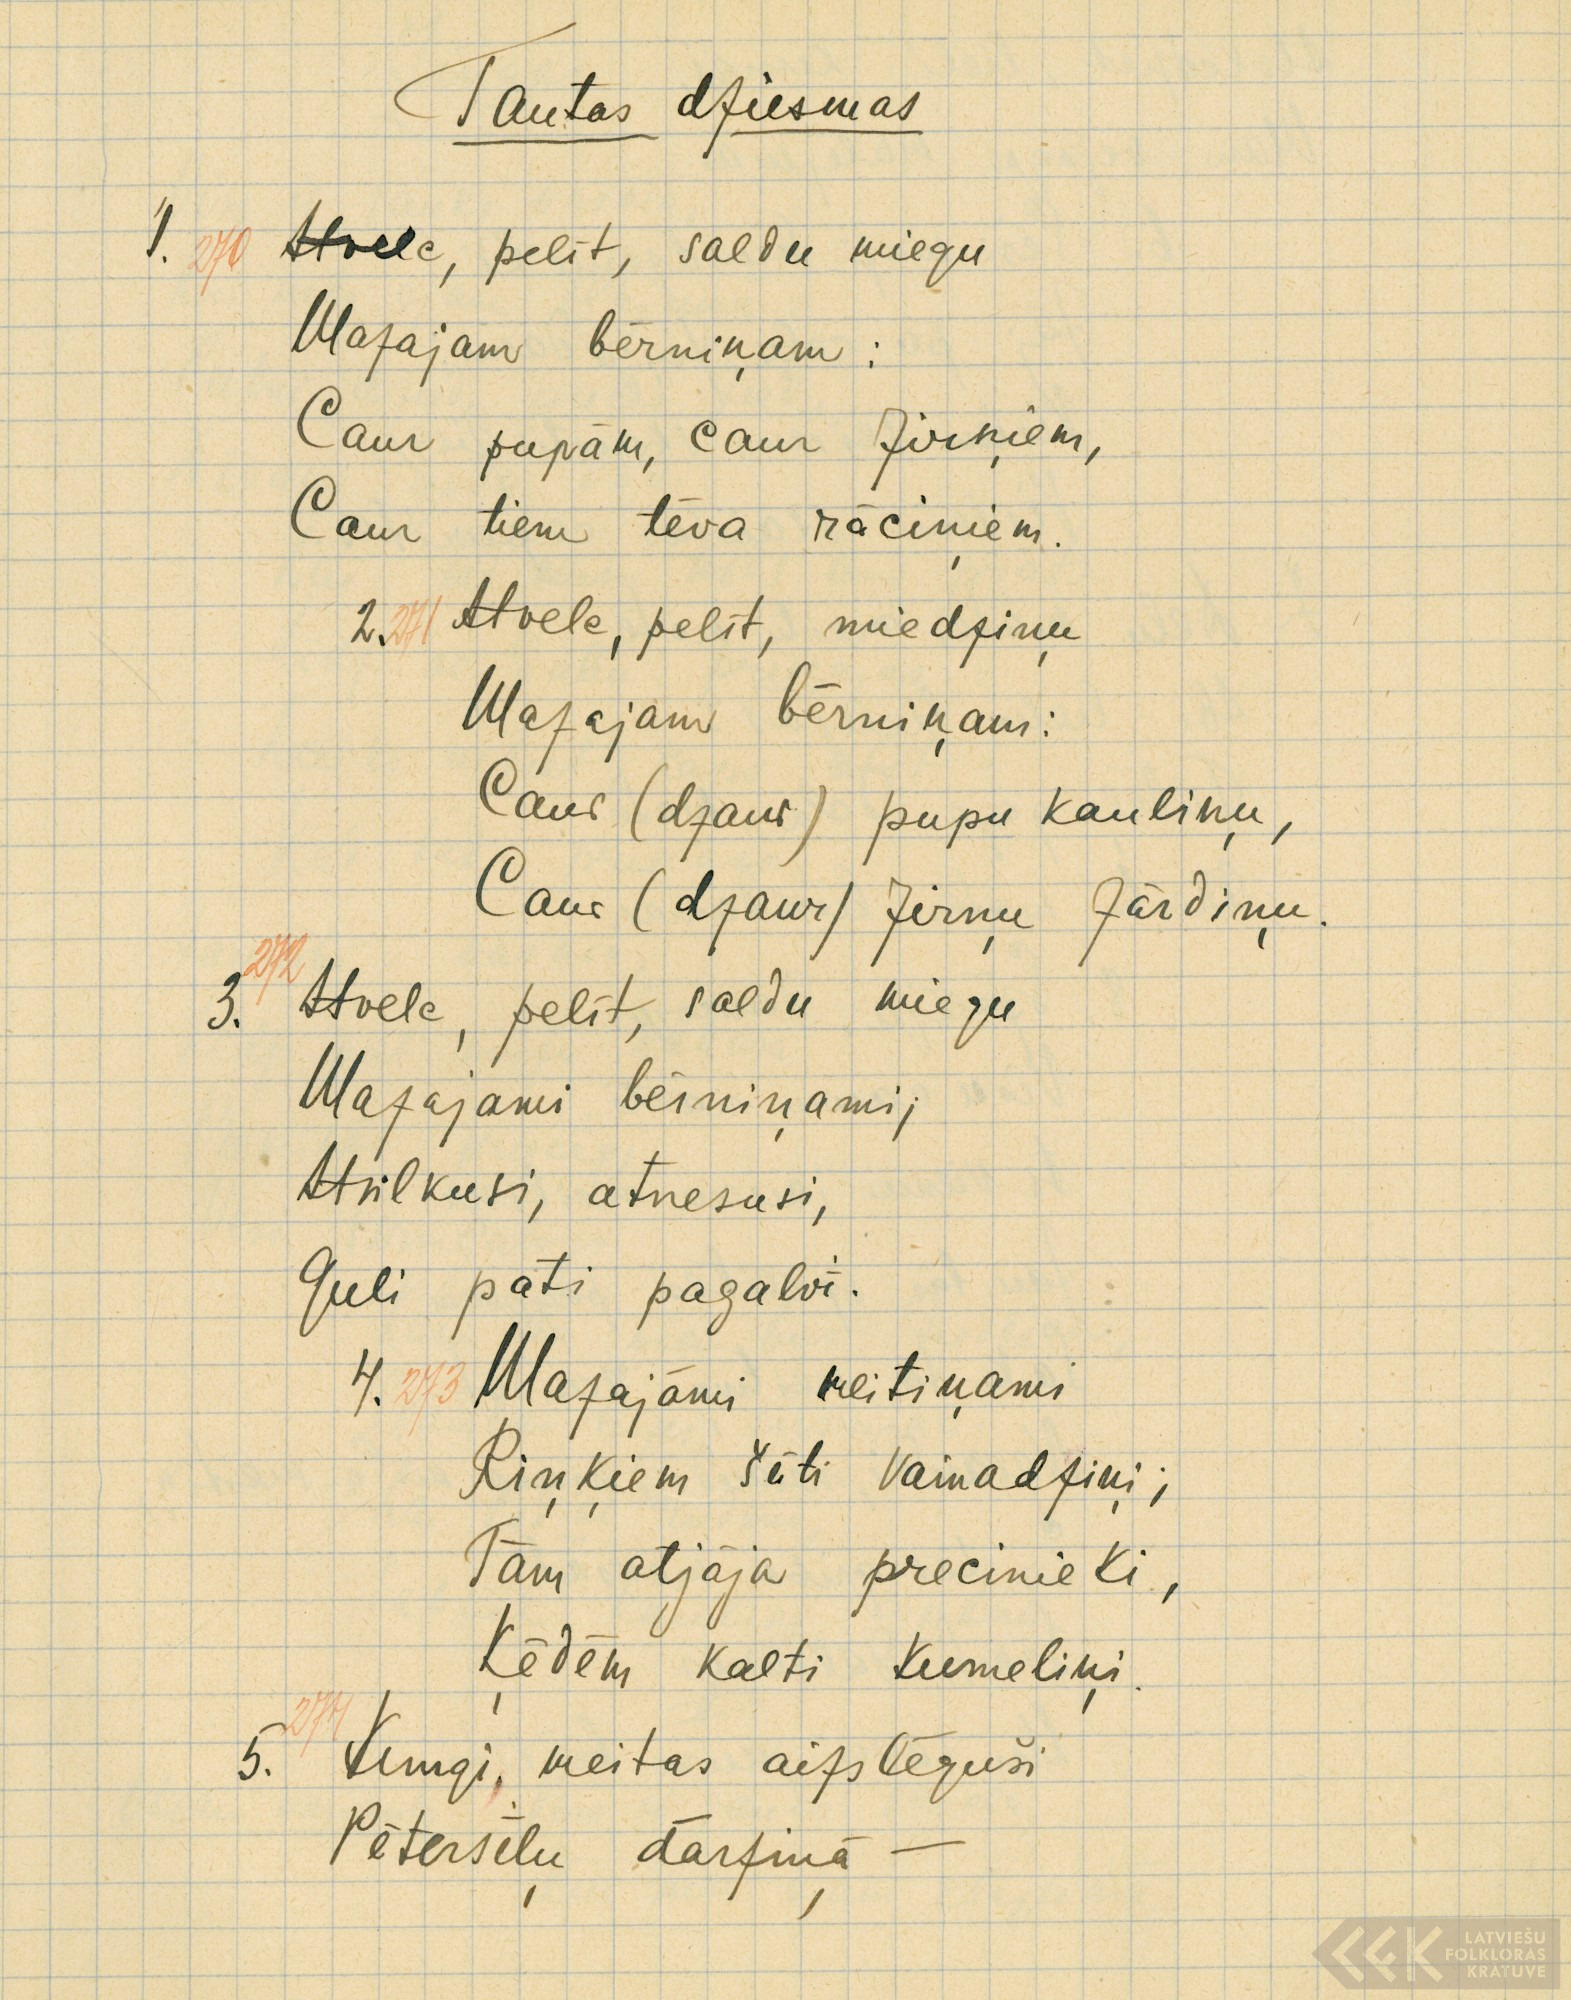 Tautas dziesmas
1. 270 Atvelc, pelīt, saldu miegu
Mazajam bērniņam:
Caur pupām, caur zirņiem,
Caur tiem tēva rāciņiem.
2. 271 Atvelc, pelīt, miedziņu
Mazajam bērniņam:
Caur (dzaur) pupu kauliņu,
Caur (dzaur) zirņu zārdiņu.
272
3. Atvelc, pelīt, saldu miegu
Mazajami bērniņami;
Atvilkusi, atnesusi,
Guli pati pagalvī.
4. 273 Mazajāmi meitiņami
Riņķiem šūti vainadziņi;
Tām atjāja precinieki,
Ķēdēm kalti kumeliņi.
274
5. Kungi, meitas aizslēguši
Pētersīļu dārziņā —
LATVIEŠU
FOLKLORAS
KRATUVE